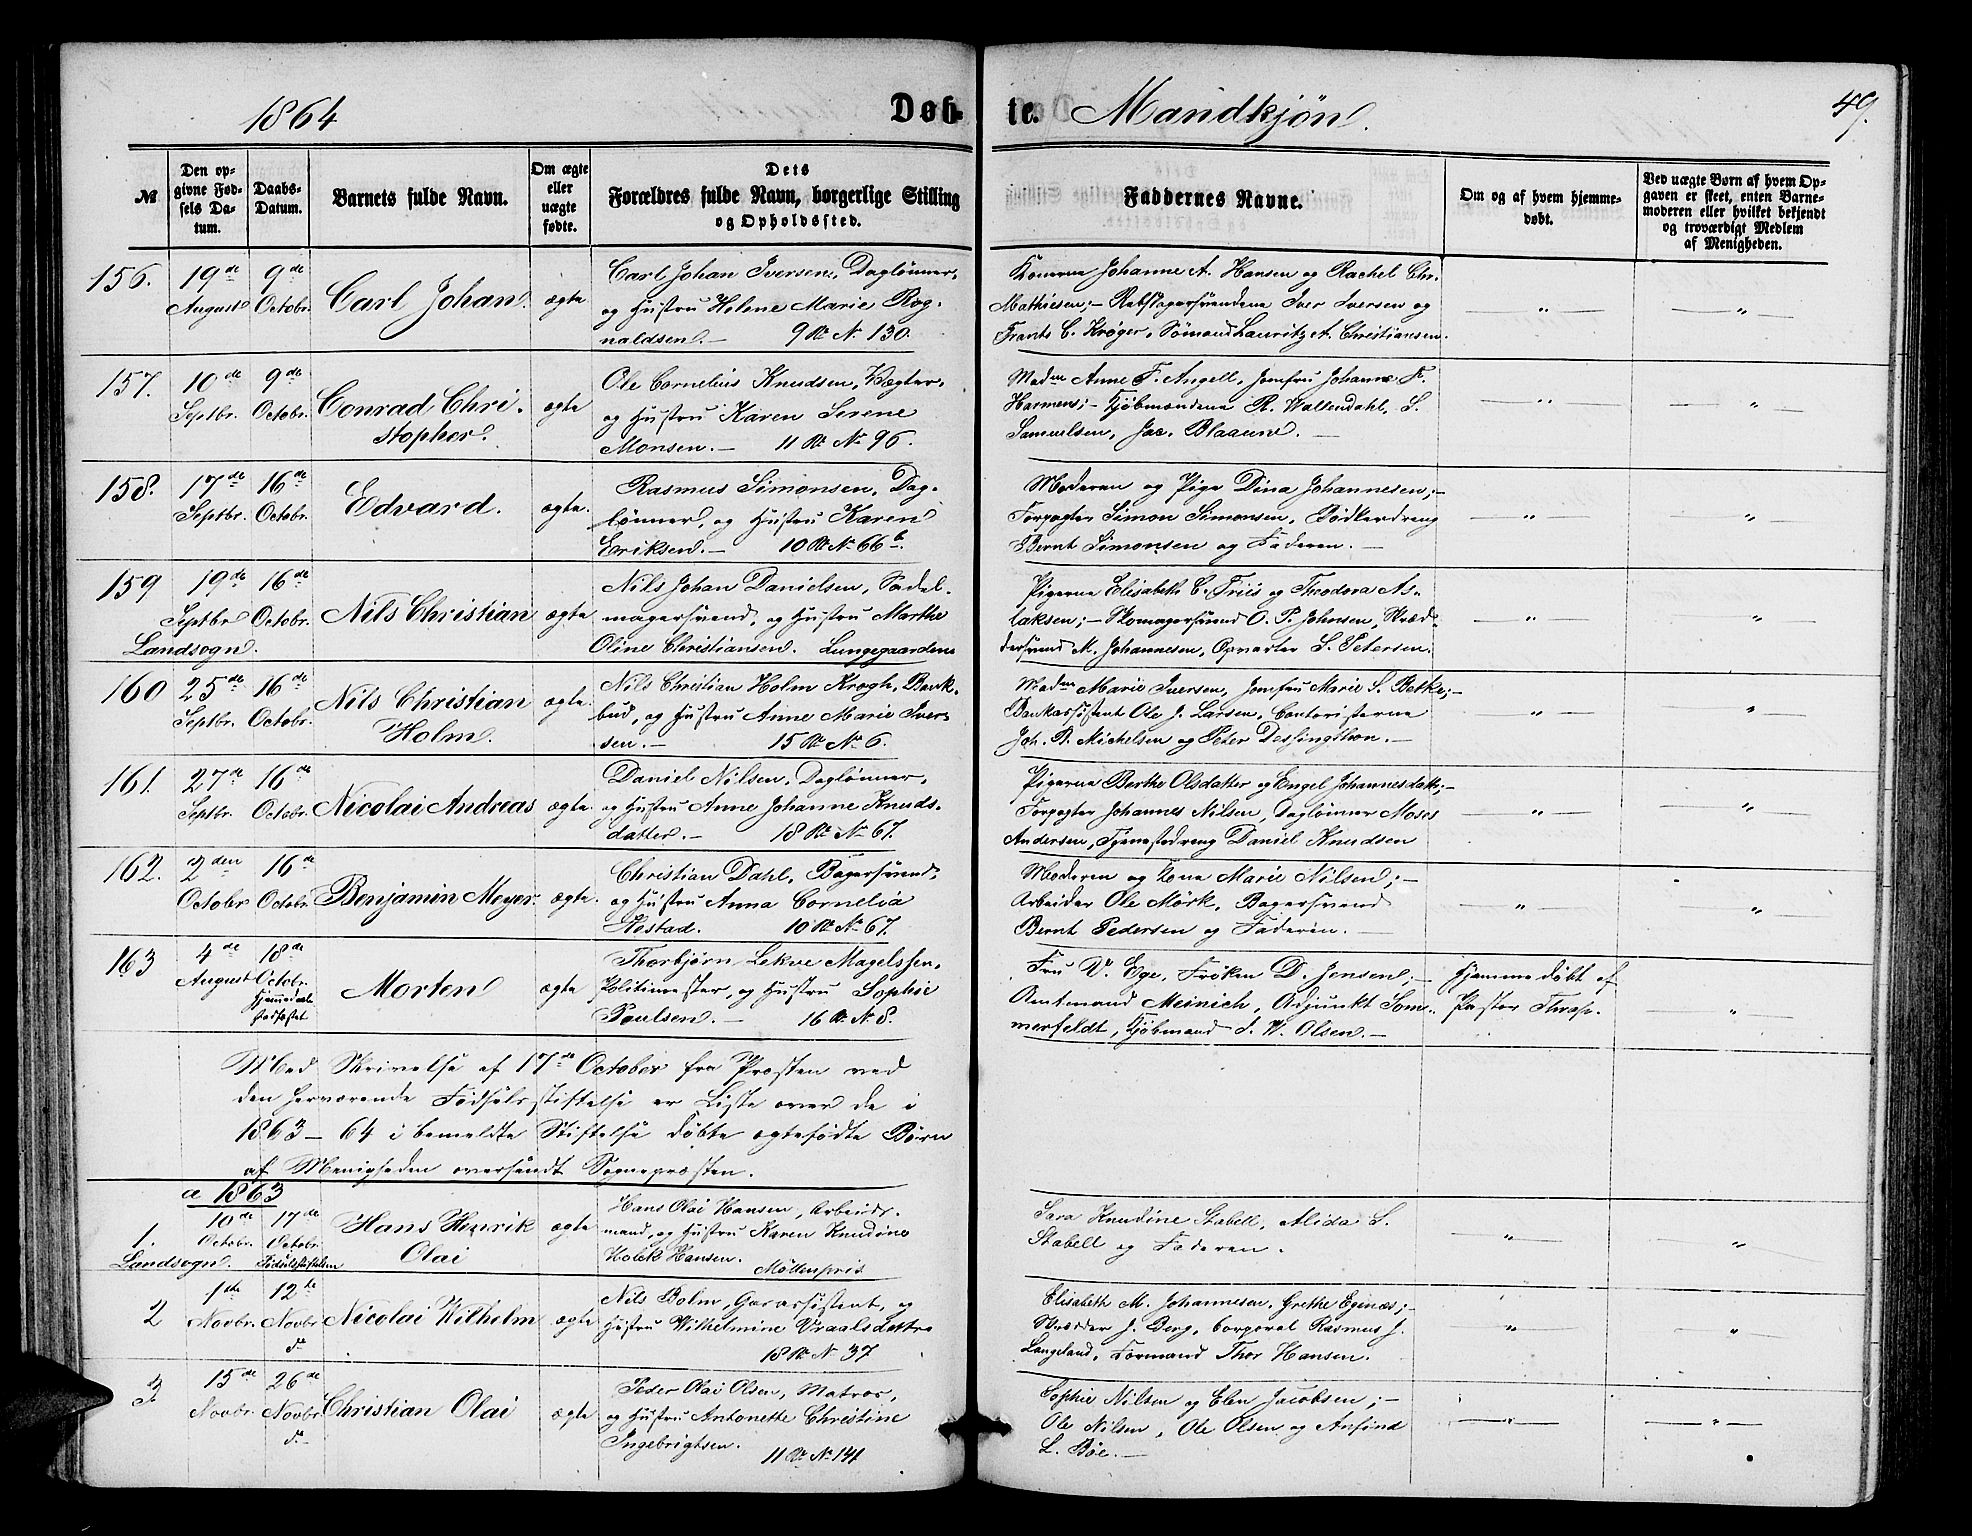 1864 Døb- te. Mandkjøn. 49.
№
Den opgivne Fødsels Datum.
Daabs-Datum.
Barnets fulde Navn.
Om ægte eller uægte fødte.
Dets Forældres fulde Navn, borgerlige Stilling og Opholdssted.
Faddernes Navne.
Om og af hvem hjemmedøbt.
Ved uægte Børn af hvem Opgaven er skeet, enten Barnemoderen eller hvilket bekjendt og troværdigt Medlem af Menigheden.
156. 19de August 9de Octobr. Carl Johan. ægte
Carl Johan Iversen, Daglønner,
og Hustru Helene Marie Rog-
naldsen.— 9 R № 130.
Konerne Johanne A. Hansen og Rachel Chr.
Mathiesen;— Rebslagersvendene Iver Iversen og
Frants C. Krøger, Sømand Lauritz A. Christiansen.
157. 10de Septbr. 9de Octobr. Conrad Chri-
stopher. ægte
Ole Cornelius Knudsen, Vægter,
og Hustru Karen Serene
Monsen.— 11 R № 96.
Madm Anne F. Angell, Jomfru Johanne F.
Harmens;— Kjøbmændene R. Wallendahl, S.
Samuelsen, Jac. Blaauw.—
158. 17de Septbr. 16de Octobr. Edvard. ægte.
Rasmus Simonsen, Dag-
lønner, og Hustru Karen
Eriksen.— 10 R № 66b.
Moderen og Pige Dina Johannesen;—
Forpagter Simon Simonsen, Bødkerdreng
Bernt Simonsen og Faderen.—
159 19de Septbr 16de Octobr. Nils Christian ægte
Landsogn.
Nils Johan Danielsen, Sadel-
magersvend, og Hustru Marthe
Oline Christiansen. Lungegaarden
Pigerne Elisabeth C. Friis og Theodora As-
laksen;— Skomagersvend O. P. Johnsen, Skræd-
dersvend M. Johannesen, Opvarter S. Petersen.
160 25de Septbr. 16de Octobr. Nils Christian
Holm. ægte.
Nils Christian Holm Krogh, Bank-
bud, og Hustru Anne Marie Iver-
sen.— 15 R № 6.
Madm Marie Iversen, Jomfru Marie S. Betke;—
Bankassistent Ole J. Larsen, Contoristerne
Joh. D. Michelsen og Peter Dessingthon.—
161. 27de Septbr. 16de Octobr. Nicolai Andreas ægte.
Daniel Nilsen, Daglønner,
og Hustru Anne Johanne Knuds-
datter.— 18 R № 67.
Pigerne Berthe Olsdatter og Engel Johannesdatt;—
Forpagter Johannes Nilsen, Daglønner Moses
Andersen, Tjenestedreng Daniel Knudsen
162. 2den October 16de Octobr. Benjamin Meyer. ægte.
Christian Dahl, Bagersvend,
og Hustru Anna Cornelia
Hestad. 10 R № 67.
Moderen og Kone Marie Nilsen;—
Arbeider Ole Mørk, Bagersvend
Bernt Pedersen og Faderen.—
163 4de August 18de Octobr. Hjemmedaab stadfæstet Morten ægte
Thorbjørn Lekve Magelssen,
Politimester, og Hustru Sophie
Poulsen.— 16 R № 8.
Fru V. Ege, Frøken D. Jensen;—
Amtmand Meinich, Adjunkt Som-
merfeldt, Kjøbmand I. W. Olsen.—
Hjemmedøbt af
Pastor Thrap.
Med Skrivelse af 17de October fra Præsten ved
den herværende Fødselsstiftelse er Liste over de i
1863–64 i bemeldte Stiftelse døbte ægtefødte Børn
af Menigheden oversendt Sognepræsten.
a 1863
1. 10de Octobr. 17de Octobr. Fødselsstiftelsen Hans Henrik
Olai ægte
Landsogn.
Hans Olai Hansen, Arbeids-
mand, og Hustru Karen Knudine
Holck Hansen. Møllenpris
Sara Knudine Stabell, Alida S.
Stabell og Faderen.
2 1ste Novbr. 12te Novbr do Nicolai Wilhelm ægte
Nils Bolm, Garassistent, og
Hustru Wilhelmine Vraalsdattr
18 R № 37
Elisabeth M. Johannesen, Grethe Egenæs;—
Skrædder J. Berg, Corporal Rasmus J.
Langeland, Formand Thor Hansen.
3 15de Novbr. 26de Novbr do Christian Olai ægte
Peder Olai Olsen, Matros,
og Hustru Antonette Christine
Ingebrigtsen. 11 R № 141
Sophie Nilsen og Elen Jacobsen;—
Ole Nilsen, Ole Olsen og Anfind
L. Bøe.—